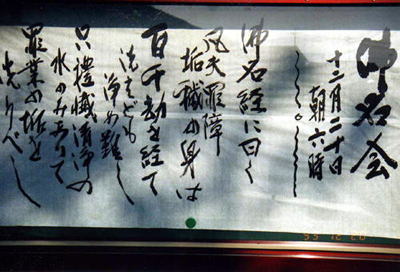 佛名会
十二月二十日
朝六時
佛名経に曰く
凡夫罪障
垢穢の身は
百千劫を経て
洗えども
浄め難し
只禮懺清浄の
水のみありて
罪業の垢を
洗うべし